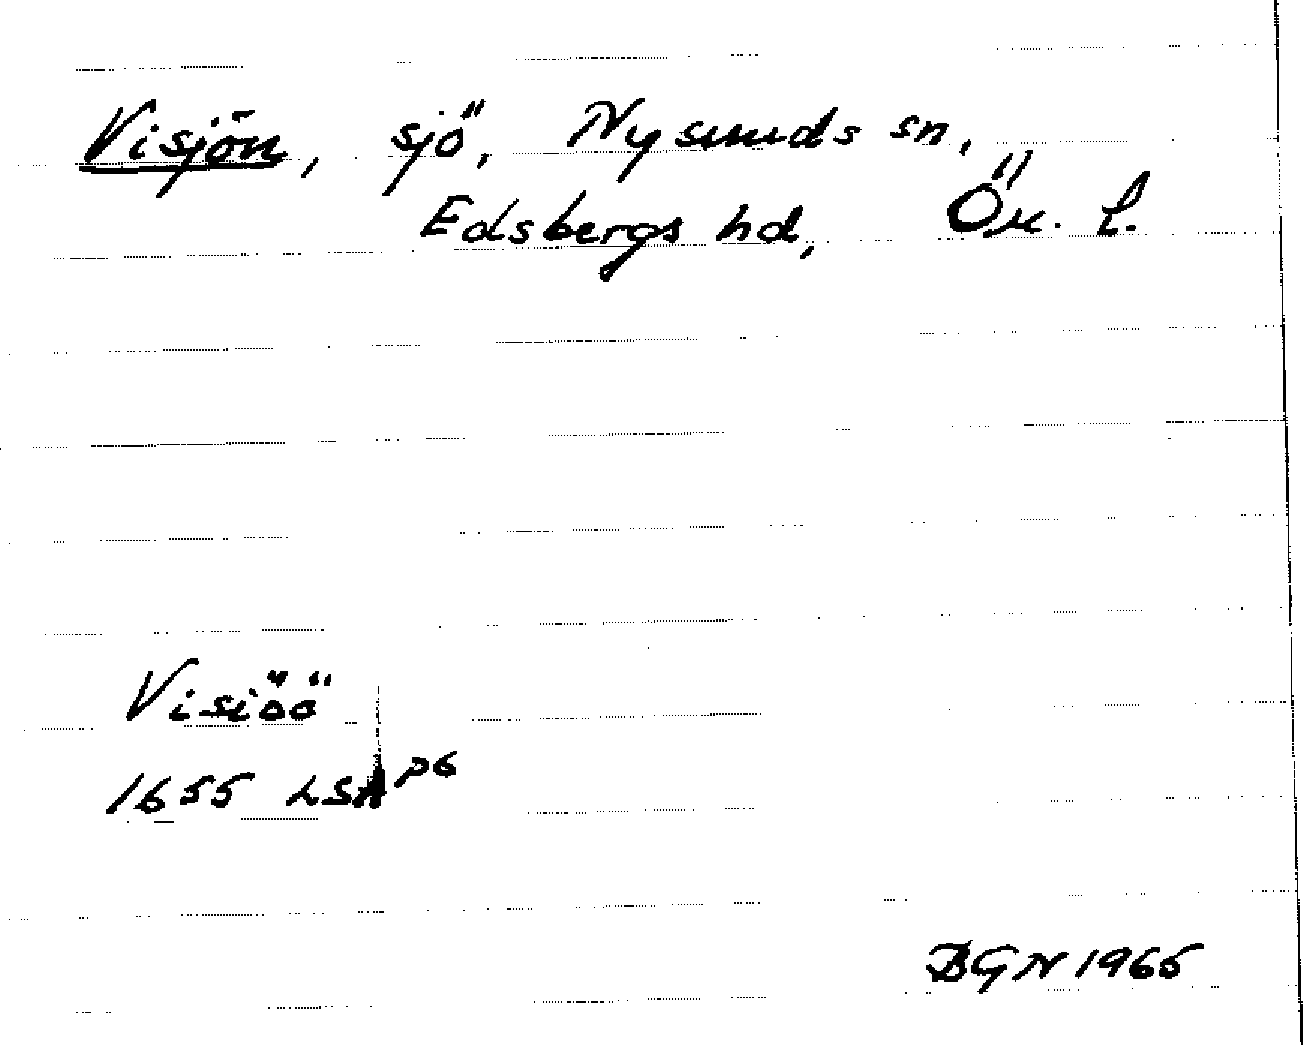 Visjön, sjö, Nysunds sn,
Edsbergs hd, Ör. l.
Visiöö
1655 LSA P6
BGN 1965